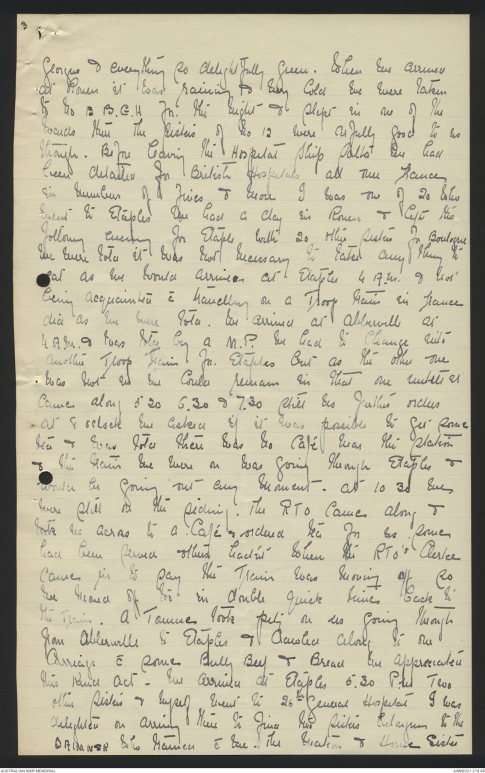 3
gorgeous & everything so delightfully green. When we arrived
at Rouen it was raining & very cold we were taken
to No 12 B.G.H for the night & slept in one of the
wards then the Sisters of No 12 were awfully good to us
though. Before leaving the Hospital Ship we had
been detailed for British Hospitals all over France
in numbers of fives & more I was one of 20 who
went to Etaples we had a day in Rouen & left the
following evening for Etaples with 20 other Sisters for Boulogne
we were told it was not necessary to take any thing to
eat as we would arrive at Etaples 4 A.M. & not
being acquainted c travelling on a Troop Train in France
did as we were told. We arrived at Abbeville at
4 A.M. & was told by a M.P. we had to change into
another Troop Train for Etaples but as the other one
was not in we could remain in that one until it
came along 5 20 5.30 & 7.30 still no further orders
at 8 oclock we asked if it was possible to get some
tea & was told there was no Café near the station
& the train we were on was going through Etaples &
would be going out any moment. At 10 30 we
were still on the siding. The RTO came along &
took us across to a Café & ordered tea for us some
had been served others hadn't when the RTO's Clerk
came in to say the train was moving off so
we in double quick time back to
the train. A Tommie took pity on us going through
from Abbeville to Etaples & along to our
Carriage c some Bully Beef & Bread we appreciated
this kind act. We arrived at Etaples 5.30 P.M. Two
other Sisters & myself went to 26th General Hospital I was
delighted on arriving there to find two Sisters to the
who trained c me. The Matron & Home Sister
AUSTRALIAN WAR MEMORIAL